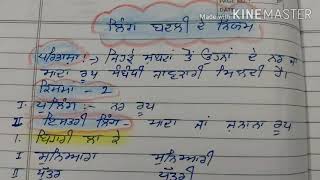 PAGE NO.:
DATE:
Made with KINEMASTER
ਲਿੰਗ ਬਦਲੀ ਦੇ ਨਿਯਮ
ਪਰਿਭਾਸ਼ਾ :- ਜਿਹੜੇ ਸ਼ਬਦਾਂ ਤੋਂ ਉਹਨਾਂ ਦੇ ਨਰ ਜਾਂ
ਮਾਦਾ ਰੂਪ ਸੰਬੰਧੀ ਜਾਣਕਾਰੀ ਮਿਲਦੀ ਹੈ।
ਕਿਸਮਾਂ - 2
I ਪੁਲਿੰਗ :- ਨਰ ਰੂਪ
II ਇਸਤਰੀ ਲਿੰਗ - ਮਾਦਾ ਜਾਂ ਜ਼ਨਾਨਾ ਰੂਪ
1. ਬਿਹਾਰੀ ਲਾ ਕੇ
I ਸੁਨਿਆਰਾ ਸੁਨਿਆਰੀ
II ਪੁੱਤਰ ਪੁੱਤਰੀ